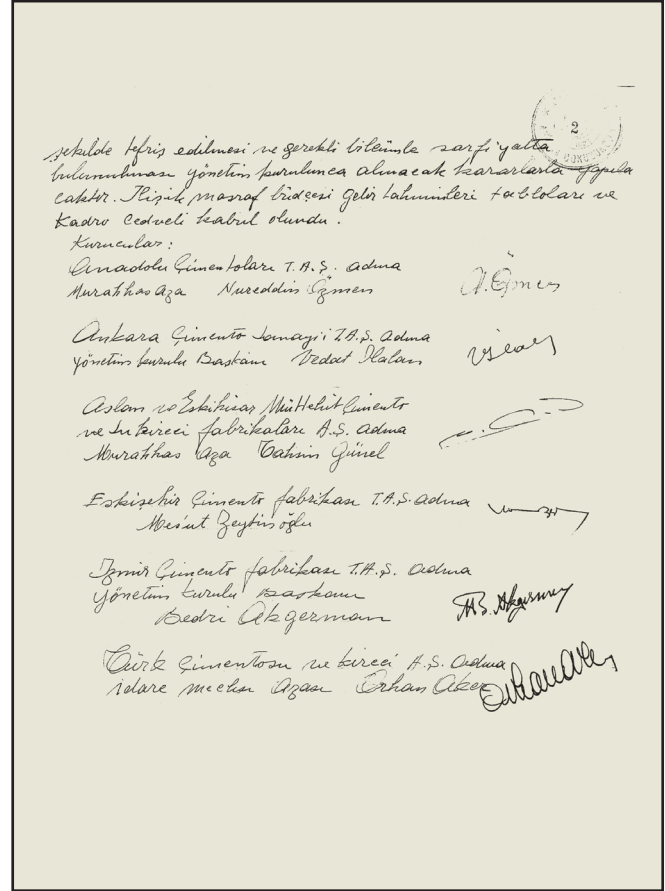 2
şekilde tefriş edilmesi ve gerekli bilcümle sarfiyatta
bulunulması yönetim kurulunca alınacak kararlarla yapıla
caktır. İlişik masraf büdçesi gelir tahminleri tabloları ve
Kadro Cedveli kabul olundu.
Kurucular:
Anadolu Çimentoları T.A.Ş. adına
Murahhas Aza Nureddin Özmen
Ankara Çimento Sanayii T.A.Ş. adına
yönetim kurulu Başkanı Vedat
Aslan ve Eskihisar Müttehit Çimento
ve Su kireci fabrikaları A.Ş. adına
Murahhas Aza Tahsin Günel
Eskişehir Çimento fabrikası T.A.Ş. adına
Mesut Zeytinoğlu
İzmir Çimento fabrikası T.A.Ş. adına
yönetim kurulu Başkanı
Bedri Akgerman
Türk Çimentosu ve kireci A.Ş. adına
idare meclisi azası Orhan Aker